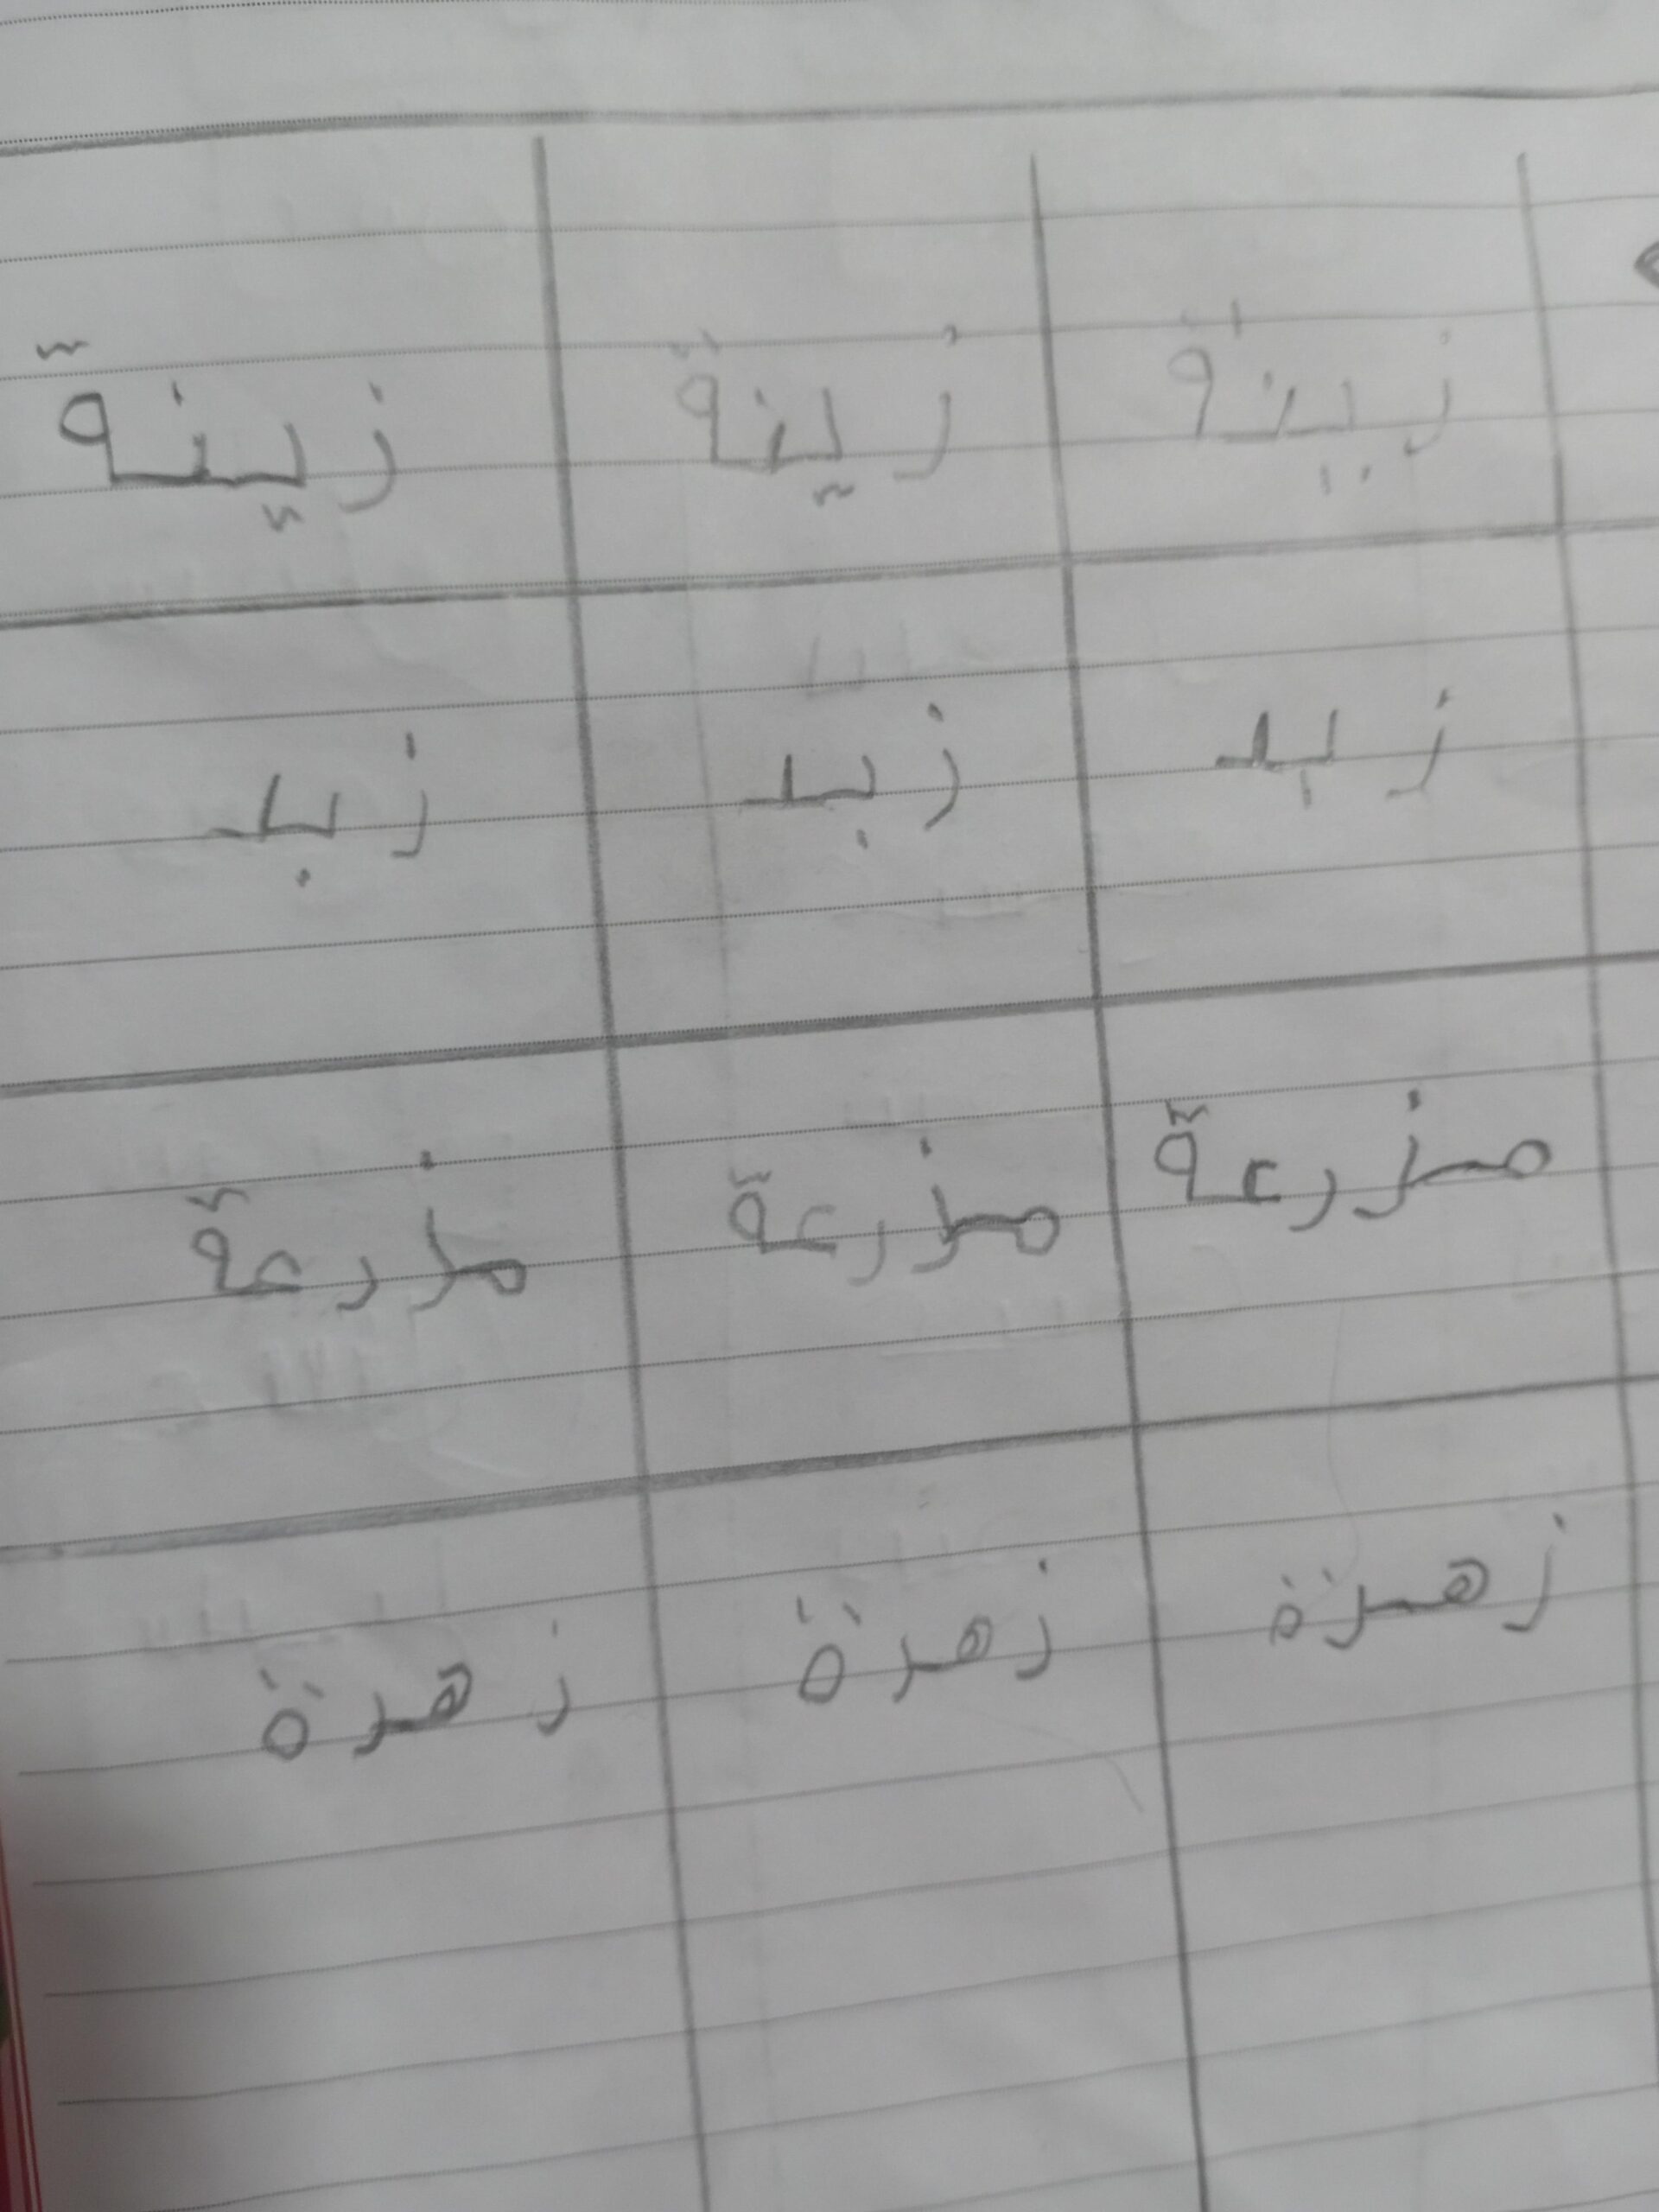 زينة زينة زينة
زبد زبد زبد
مزرعة مزرعة مزرعة
زهرة زهرة زهرة